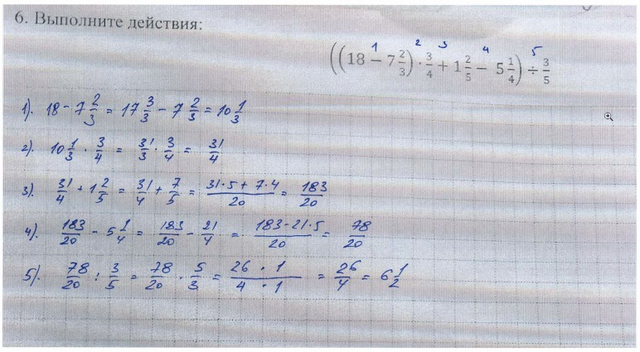 6. Выполните действия:
1 2 3 4 5
((18 − 7 2/3) · 3/4 + 1 2/5 − 5 1/4) ÷ 3/5
1). 18 − 7 2/3 = 17 3/3 − 7 2/3 = 10 1/3
2). 10 1/3 · 3/4 = 31/3 · 3/4 = 31/4
3). 31/4 + 1 2/5 = 31/4 + 7/5 = (31·5 + 7·4)/20 = 183/20
4). 183/20 − 5 1/4 = 183/20 − 21/4 = (183 − 21·5)/20 = 78/20
5). 78/20 : 3/5 = 78/20 · 5/3 = (26 · 1)/(4 · 1) = 26/4 = 6 1/2